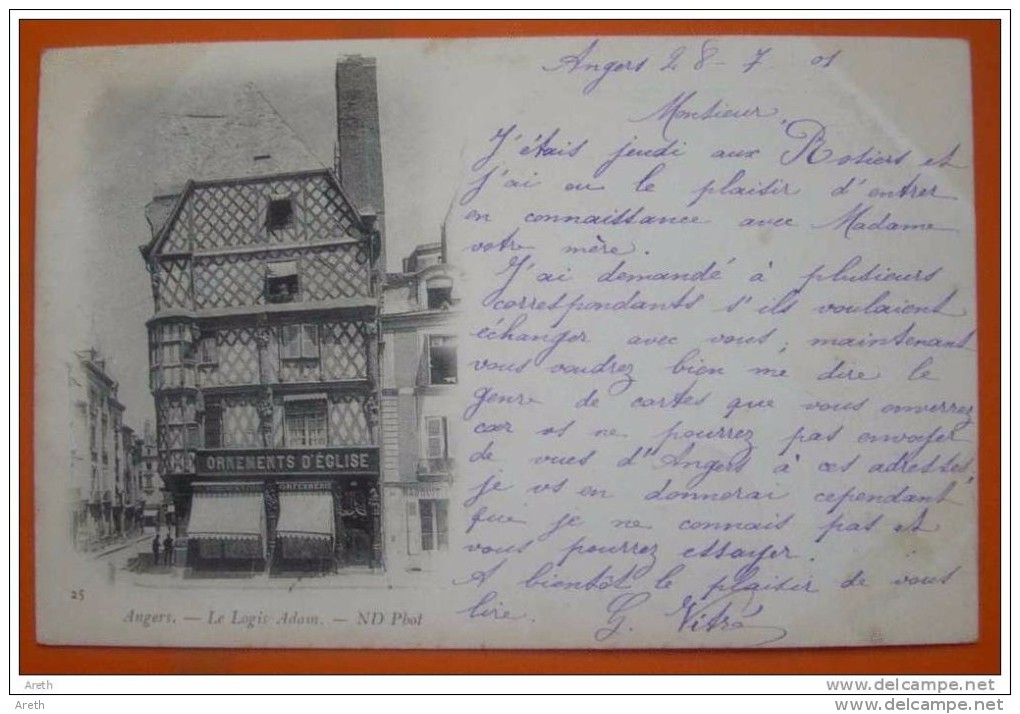 Angers 28-7 01
Monsieur,
J'étais jeudi aux Rosiers et
j'ai eu le plaisir d'entrer
en connaissance avec Madame
votre mère.
J'ai demandé à plusieurs
correspondants s'ils voulaient
échanger avec vous; maintenant
vous voudrez bien me dire le
genre de cartes que vous enverrez
car vs ne pourrez pas envoyer
de vues d'Angers à ces adresses,
je vs en donnerai cependant
que je ne connais pas et
vous pourrez essayer.
A bientôt le plaisir de vous
lire. G. Vitré
ORNEMENTS D'ÉGLISE
ORFEVRERIE
25
Angers. — Le Logis Adam. — ND Phot
Areth www.delcampe.net
Areth www.delcampe.net